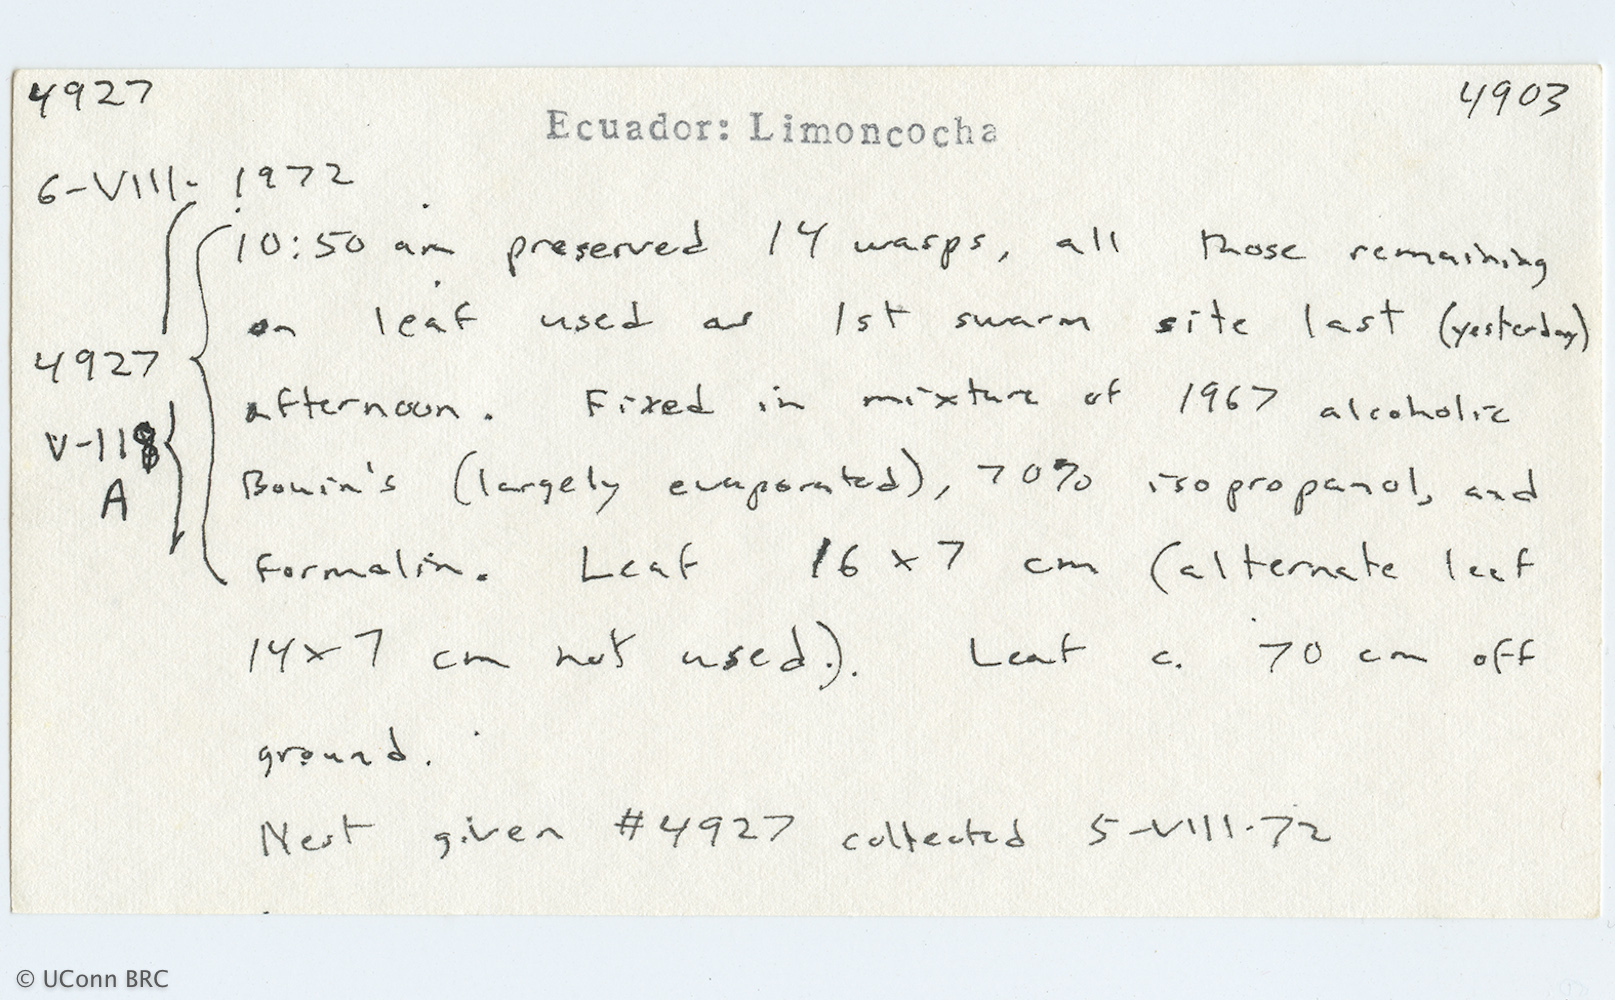 4927
4903
Ecuador: Limoncocha
6-VIII-1972
10:50 am preserved 14 wasps, all those remaining
on leaf used as 1st swarm site last (yesterday)
4927
afternoon. Fixed in mixture of 1967 alcoholic
V-118
A
Bouin's (largely evaporated), 70% isopropanol, and
formalin. Leaf 16 x 7 cm (alternate leaf
14 x 7 cm not used). Leaf c. 70 cm off
ground.
Nest given #4927 collected 5-VIII-72
© UConn BRC